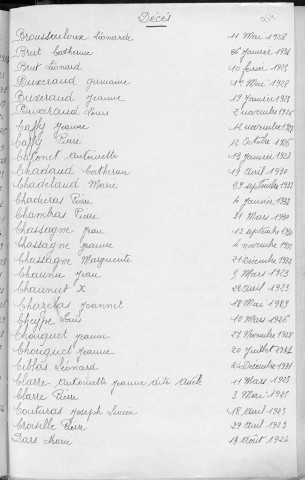 Décès
Broussouloux Léonarde 11 Mai 1928
Brut Catherine 26 Janvier 1931
Brut Léonard 10 février 1923
Buxeraud Germaine 1er Mai 1928
Buxeraud Jeanne 19 Janvier 1928
Buxeraud Louis 2 novembre 1926
Caffy Jeanne 12 novembre
Caffy Pierre 12 Octobre 1926
Antoinette 19 Janvier 1923
Chadaud Catherine 19 Avril 1930
Chadelaud Marie 29 septembre 1931
Chadieras Pierre 4 janvier 1932
Chambras Pierre 31 Mars 1930
Chassagne Jean 12 septembre
Chassagne Jeanne 4 novembre
Chassagne Marguerite 21 Décembre 1932
Chaunu Jean 5 Mars 1923
Chaunut X 22 Avril 1923
Chazelas Jeannet 18 Mai 1929
Cheype Louis 10 Mars 1926
Chouquet Jeanne 27 Novembre 1928
Chouquet Jeanne 20 Juillet 1931
Léonard 24 Décembre 1931
Clarre Antoinette Jeanne dite 11 Mars 1923
Clarre Pierre 3 Mai 1925
Couturas Joseph Lucien 18 Avril 1925
Croisille Pierre 29 Avril 1923
Dars 19 Août 1924